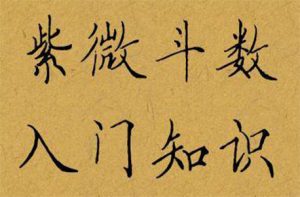 紫微斗数
入门知识